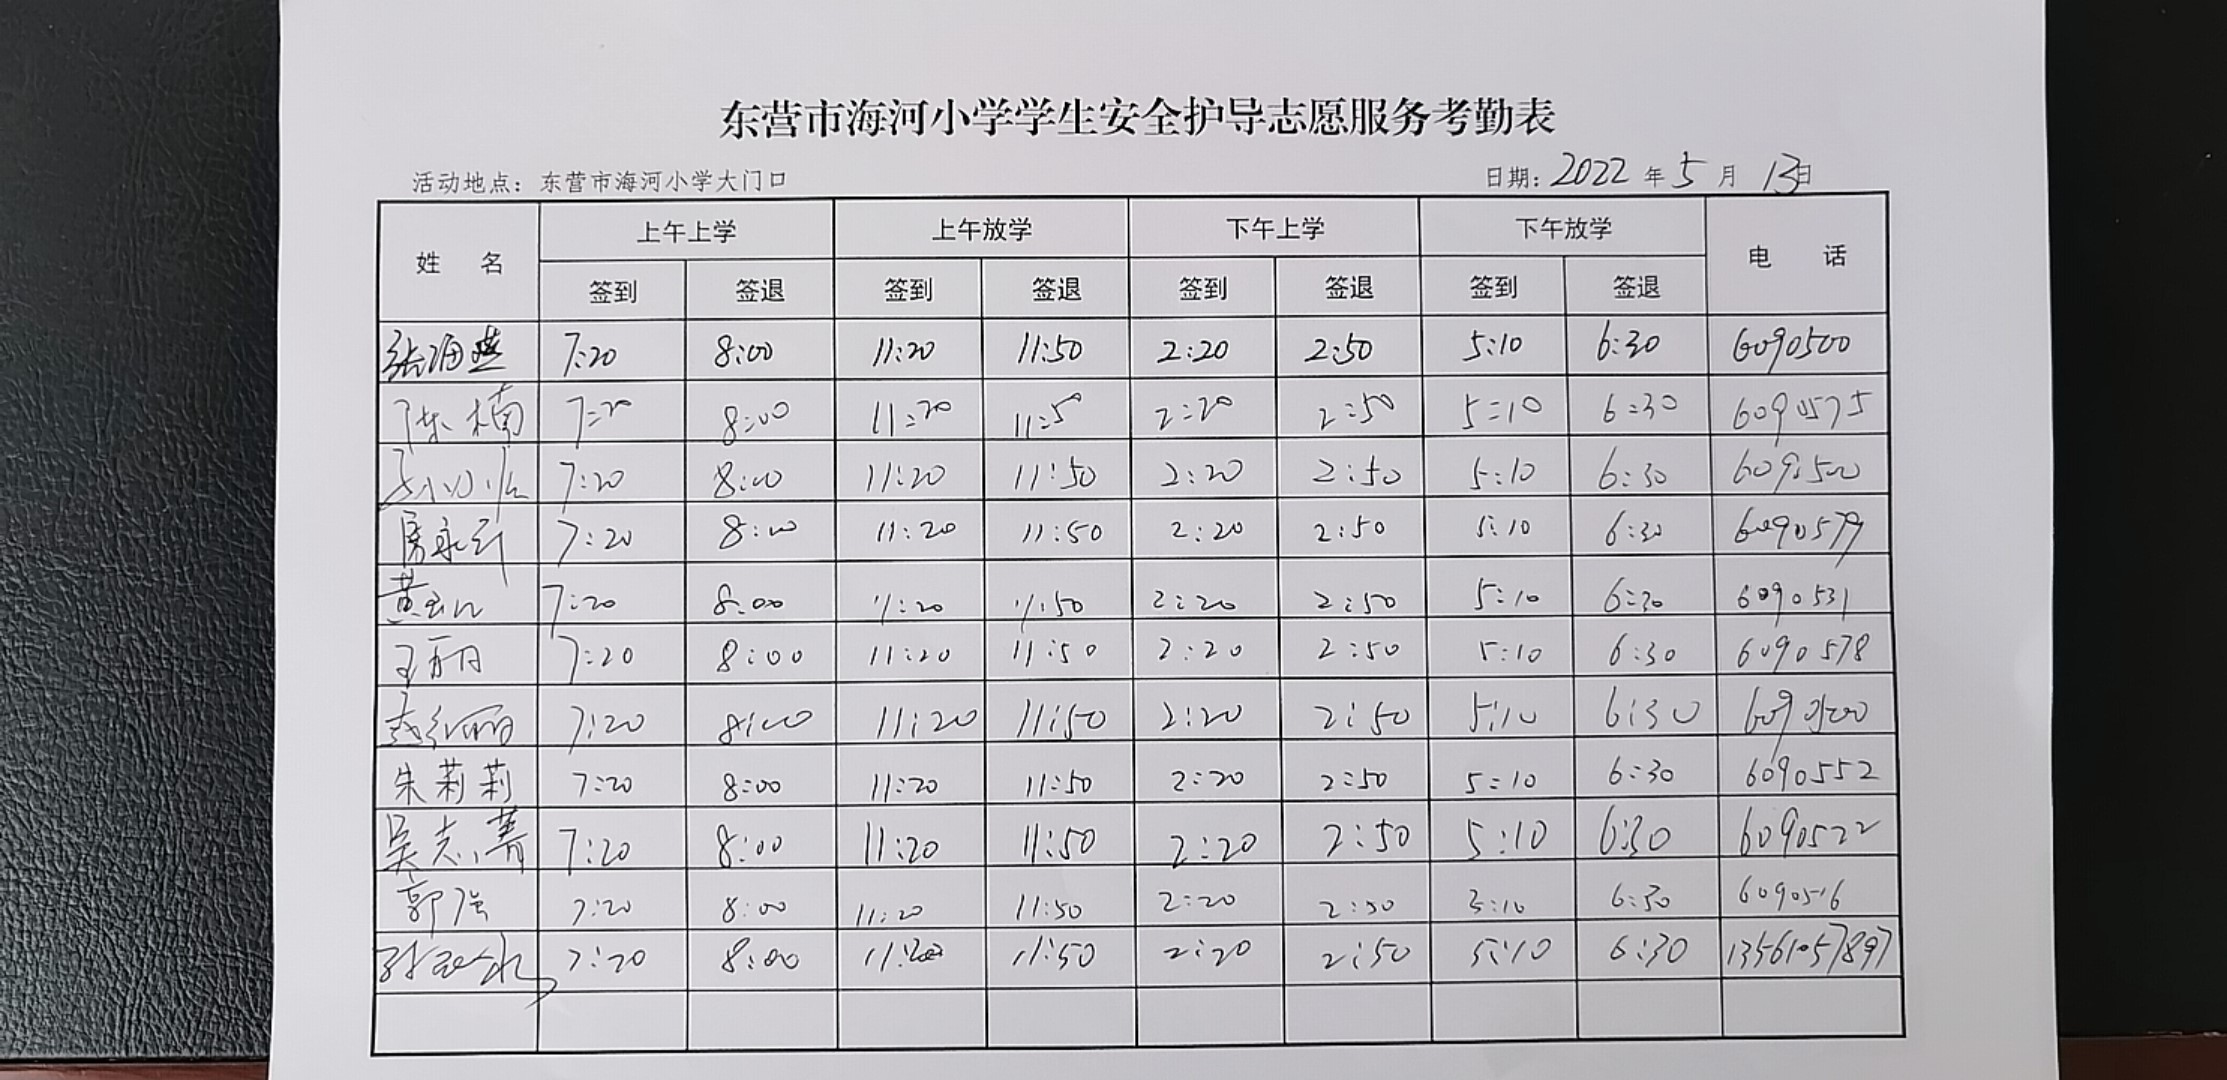 东营市海河小学学生安全护导志愿服务考勤表
活动地点：东营市海河小学大门口 日期：2022年5月13日
姓 名 上午上学 上午放学 下午上学 下午放学 电 话
签到 签退 签到 签退 签到 签退 签到 签退
张海燕 7:20 8:00 11:20 11:50 2:20 2:50 5:10 6:30 6090500
陈楠 7:20 8:00 11:20 11:50 2:20 2:50 5:10 6:30 6090575
7:20 8:00 11:20 11:50 2:20 2:50 5:10 6:30 6090500
7:20 8:00 11:20 11:50 2:20 2:50 5:10 6:30 6090579
黄 7:20 8:00 11:20 11:50 2:20 2:50 5:10 6:30 6090531
王丽 7:20 8:00 11:20 11:50 2:20 2:50 5:10 6:30 6090578
7:20 8:00 11:20 11:50 2:20 2:50 5:10 6:30 6090500
朱莉莉 7:20 8:00 11:20 11:50 2:20 2:50 5:10 6:30 6090552
吴志菁 7:20 8:00 11:20 11:50 2:20 2:50 5:10 6:30 6090522
郭强 7:20 8:00 11:20 11:50 2:20 2:50 5:10 6:30 6090516
7:20 8:00 11:20 11:50 2:20 2:50 5:10 6:30 13561057897